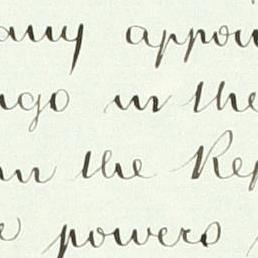 any appoin
ngo in the
in the Rep
powers